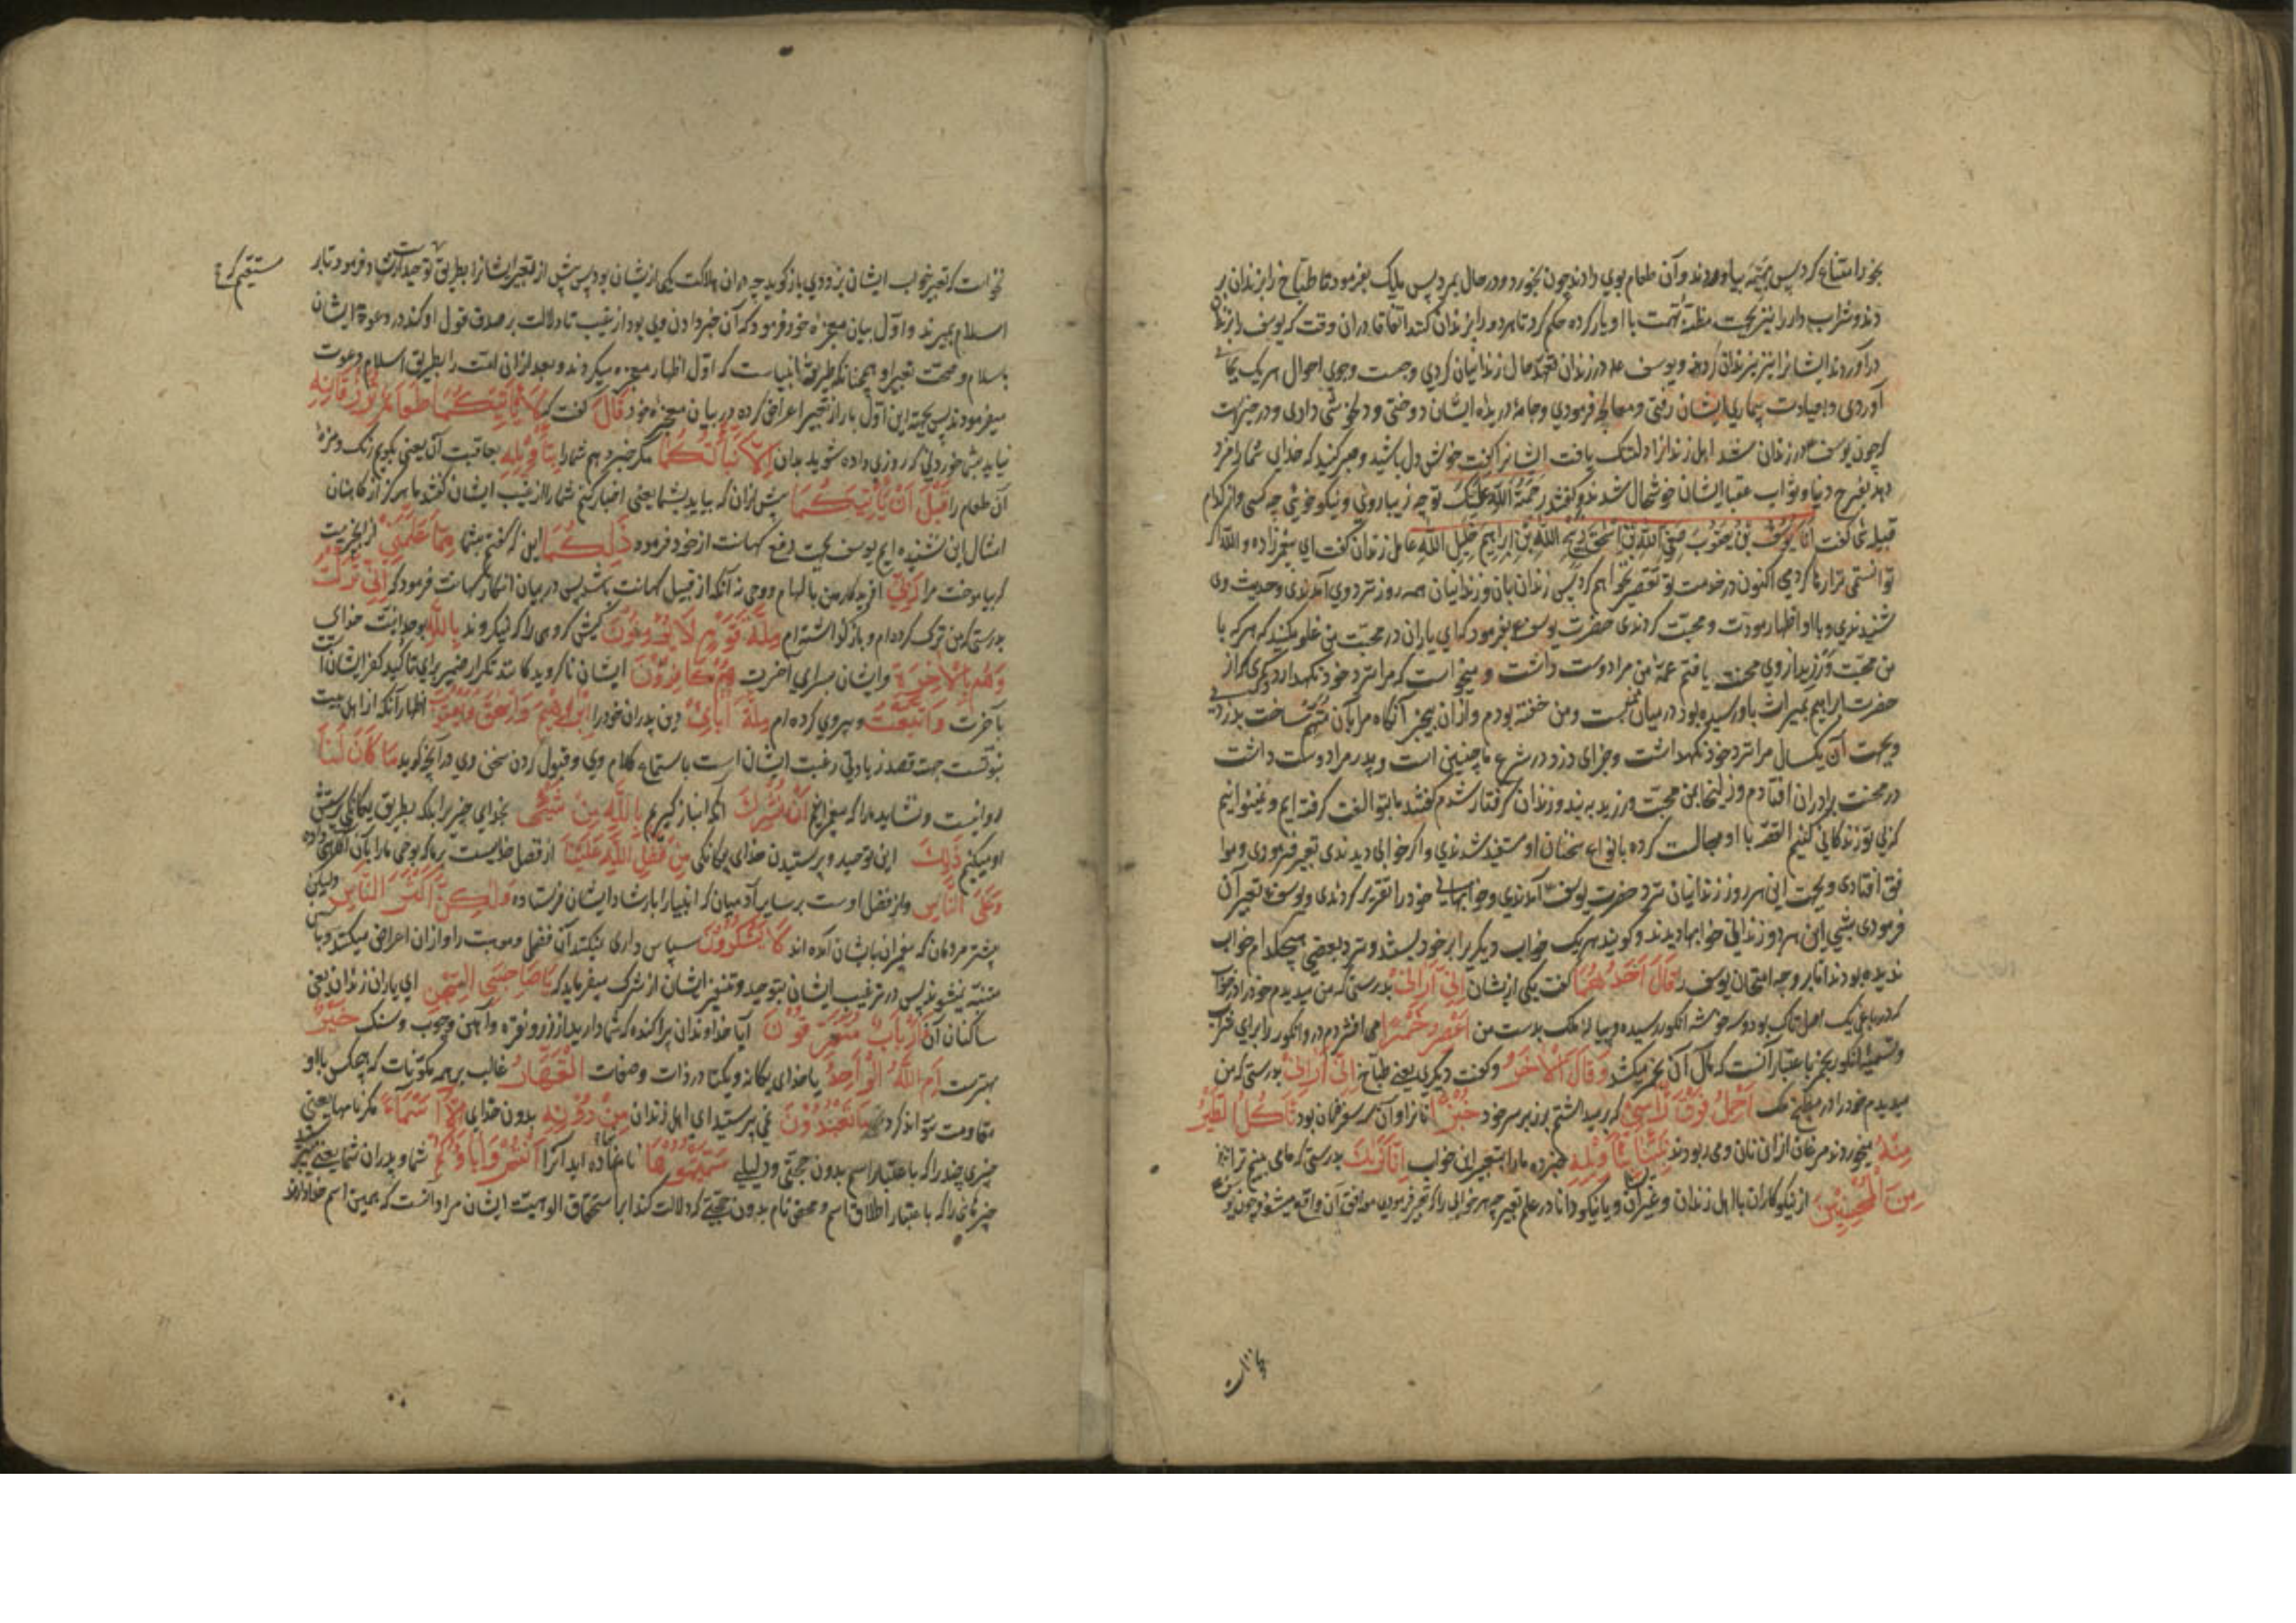 بخورد امتناع کرد پس بهیمه بیاوردند و آن طعام بوی دادند چون بخورد و در حال بمرد پس ملک بفرمود تا طباخ را بزندان بر
دند و شراب دار را نیز بجهت مظنه تهمت با او یار کرده حکم کرد تا هر دو را بزندان کنند اتفاقا در آن وقت که یوسف را بزندان
در آوردند ایشانرا نیز بزندان کردند و یوسف ع در زندان تعهد حال زندانیان کردی و جست و جوی احوال هر یک بجای
آوردی و بعیادت بیماری ایشان رفتی و معالجه فرمودی و جامه دریده ایشان دوختی و دلخوشی دادی و در خبر است
که چون یوسف در زندان شد اهل زندانرا دلتنک یافت ایشانرا کفت خوش دل باشید و صبر کنید که خدای شما را مزد
دهد بفرح دنیا و ثواب عقبا ایشان خوشحال شدند و کفتند رحمة الله علیک تو چه زیبا روئی و نیکو خوئی چه کسی و از کدام
قبیله ئی کفت انا یوسف بن یعقوب صفی الله بن اسحق ذبیح الله بن ابراهیم خلیل الله عامل زندان کفت ای پیغمبر زاده والله اکر
توانستمی ترا رها کردمی اکنون در خدمت تو تقصیر نخواهم کرد پس زندان بان و زندانیان همه روز نزد وی آمدندی و حدیث وی
شنیدندی و با او اظهار مودت و محبت کردندی حضرت یوسف ع بفرمود که ای یاران در محبت من غلو مکنید که هر که با
من محبت ورزید از وی محنت یافتم عمه من مرا دوست داشت و میخواست که مرا نزد خود نکهدارد کمری که از
حضرت ابراهیم بمیراث باو رسیده بود در میان من بست و من خفته بودم و از آن بیخبر آنکاه مرا بآن متهم ساخت بدزدی
و بجهت آن یکسال مرا نزد خود نکهداشت و جزای دزد در شرع ما چنین است و پدر مرا دوست داشت
در محنت برادران افتادم و زلیخا بمن محبت ورزید به بند و زندان کرفتار شدم کفتند ما بتو الفت کرفته ایم و نمیتوانیم
که بی تو زندکانی کنیم القصه با او مجالست کرده بانواع سخنان او مستفید شدندی و اکر خوابی دیدندی تعبیر فرمودی و موا
فق افتادی و بجهت این هر روز زندانیان نزد حضرت یوسف آمدندی و خوابهای خود را تقریر کردندی و یوسف ع تعبیر آن
فرمودی شبی این هر دو زندانی خوابها دیدند و کویند هر یک خواب دیکری را بر خود بستند و نزد بعضی هیچکدام خواب
ندیده بودند اما بر وجه امتحان یوسف را قال احدهما کفت یکی از ایشان انی ارانی بدرستی که من میدیدم خود را در خواب
که در باغی یک اصل تاک بود و سه خوشه انکور رسیده و پیاله ملک بدست من اعصر خمرا می افشردم در و انکور را برای شراب
و تسمیه انکور بخمر باعتبار آنست که مآل آن بخمر میکشد و قال الاخر و کفت دیکری یعنی طباخ انی ارانی بدرستی که من
میدیدم خود را در مطبخ ملک احمل فوق راسی که بر میداشتم بر زبر سر خود خبزا نانرا و آن سه سفره نان بود تاکل الطیر
منه میخوردند مرغان از آن نان و می ربودند نبئنا بتاویله خبر ده ما را بتعبیر این خواب انا نریک بدرستی که ما می بینیم ترا
من المحسنین از نیکوکاران با اهل زندان و غیر آن و یا نیکو دانا در علم تعبیر چه هر خوابی را که تعبیر فرمودی موافق آن واقع میشود چون یوسف
میخواست که تعبیر خواب ایشان بزودی باز کوید چه در آن هلاکت یکی از ایشان بود پس پیش از تعبیر ایشانرا بطریق توحید ارشاد فرمود تا بر
اسلام بمیرند و اول بیان معجزه خود فرمود که آن خبر دادن وی بود از غیب تا دلالت بر صدق قول او کند در دعوة ایشان
باسلام و صحت تعبیر او همچنانکه طریقه انبیاست که اول اظهار معجزه میکردند و بعد از آن امت را بطریق اسلام دعوت
میفرمودند پس بجهة این اول بار از تعبیر اعراض کرده در بیان معجزه خود قال کفت که لا یاتیکما طعام ترزقانه
نیاید بشما خوردنی که روزی داده شوید بدان الا نباتکما مکر خبر دهم شما را بتاویله بعاقبت آن یعنی بکویم رنک و مزه
آن طعام را قبل ان یاتیکما پیش از آن که بیاید بشما یعنی اخبار کنم شما را از غیب ایشان کفتند ما هرکز از کاهنان
امثال این نشنیده ایم یوسف بجهت دفع کهانت از خود فرمود ذلکما این که کفتم بشما مما علمنی از آنچیزیست
که بیاموخت مرا ربی آفریدکار من بالهام و وحی نه آنکه از قبیل کهانت باشد پس در بیان انکار کهانت فرمود که انی ترکت
بدرستی که من ترک کرده ام و باز کذاشته ام ملة قوم لا یؤمنون کیش کروهی را که نمیکروند بالله بوحدانیت خدای
و هم بالاخرة و ایشان بسرای آخرت هم کافرون ایشان ناکرویدکانند تکرار ضمیر برای تاکید کفر ایشانست
بآخرت و اتبعت و پیروی کرده ام ملة ابائی دین پدران خود را ابراهیم و اسحق و یعقوب اظهار آنکه از اهل بیت
نبوتست جهت قصد زیادتی رغبت ایشان است باستماع کلام وی و قبول کردن سخن وی در آنچه کوید ما کان لنا
روا نیست و نشاید ما را که پیغمبرانیم ان نشرک آنکه انباز کیریم بالله من شیء بخدای چیزی را بلکه بطریق یکانکی پرستش
او میکنیم ذلک این توحید و پرستیدن خدای بیکانکی من فضل الله علینا از فضل خداست بر ما که بوحی ما را بآن آکاهی داده
و علی الناس و از فضل اوست بر سایر آدمیان که انبیا را بارشاد ایشان فرستاده ولکن اکثر الناس ولیکن
بیشتر مردمان که پیغمبران بایشان آمده اند لا یشکرون سپاس داری نمیکنند آن فضل و موهبت را و از آن اعراض میکنند و بآن
متنبه نمیشوند پس در ترغیب ایشان بتوحید و تنفیر ایشان از شرک میفرماید که یا صاحبی السجن ای یاران زندان یعنی
ساکنان آن ءارباب متفرقون آیا خداوندان پراکنده که شما دارید از زر و نقره و آهن و چوب و سنک خیر
بهترست ام الله الواحد یا خدای یکانه و یکتا در ذات و صفات القهار غالب بر همه مکونات که هیچکس با او
مقاومت نتواند کرد ما تعبدون نمی پرستید ای اهل زندان من دونه بدون خدای الا اسماء مکر نامها یعنی
چیزی چند را که باعتبار اسم بدون حجتی و دلیلی سمیتموها نام نهاده اید آنرا انتم و اباؤکم شما و پدران شما یعنی
چیزهائی را که باعتبار اطلاق اسم و محض نام بدون حجتی که دلالت کند بر استحقاق الوهیت ایشان مراد آنست که همین اسم خدا دارند
مستقیم که